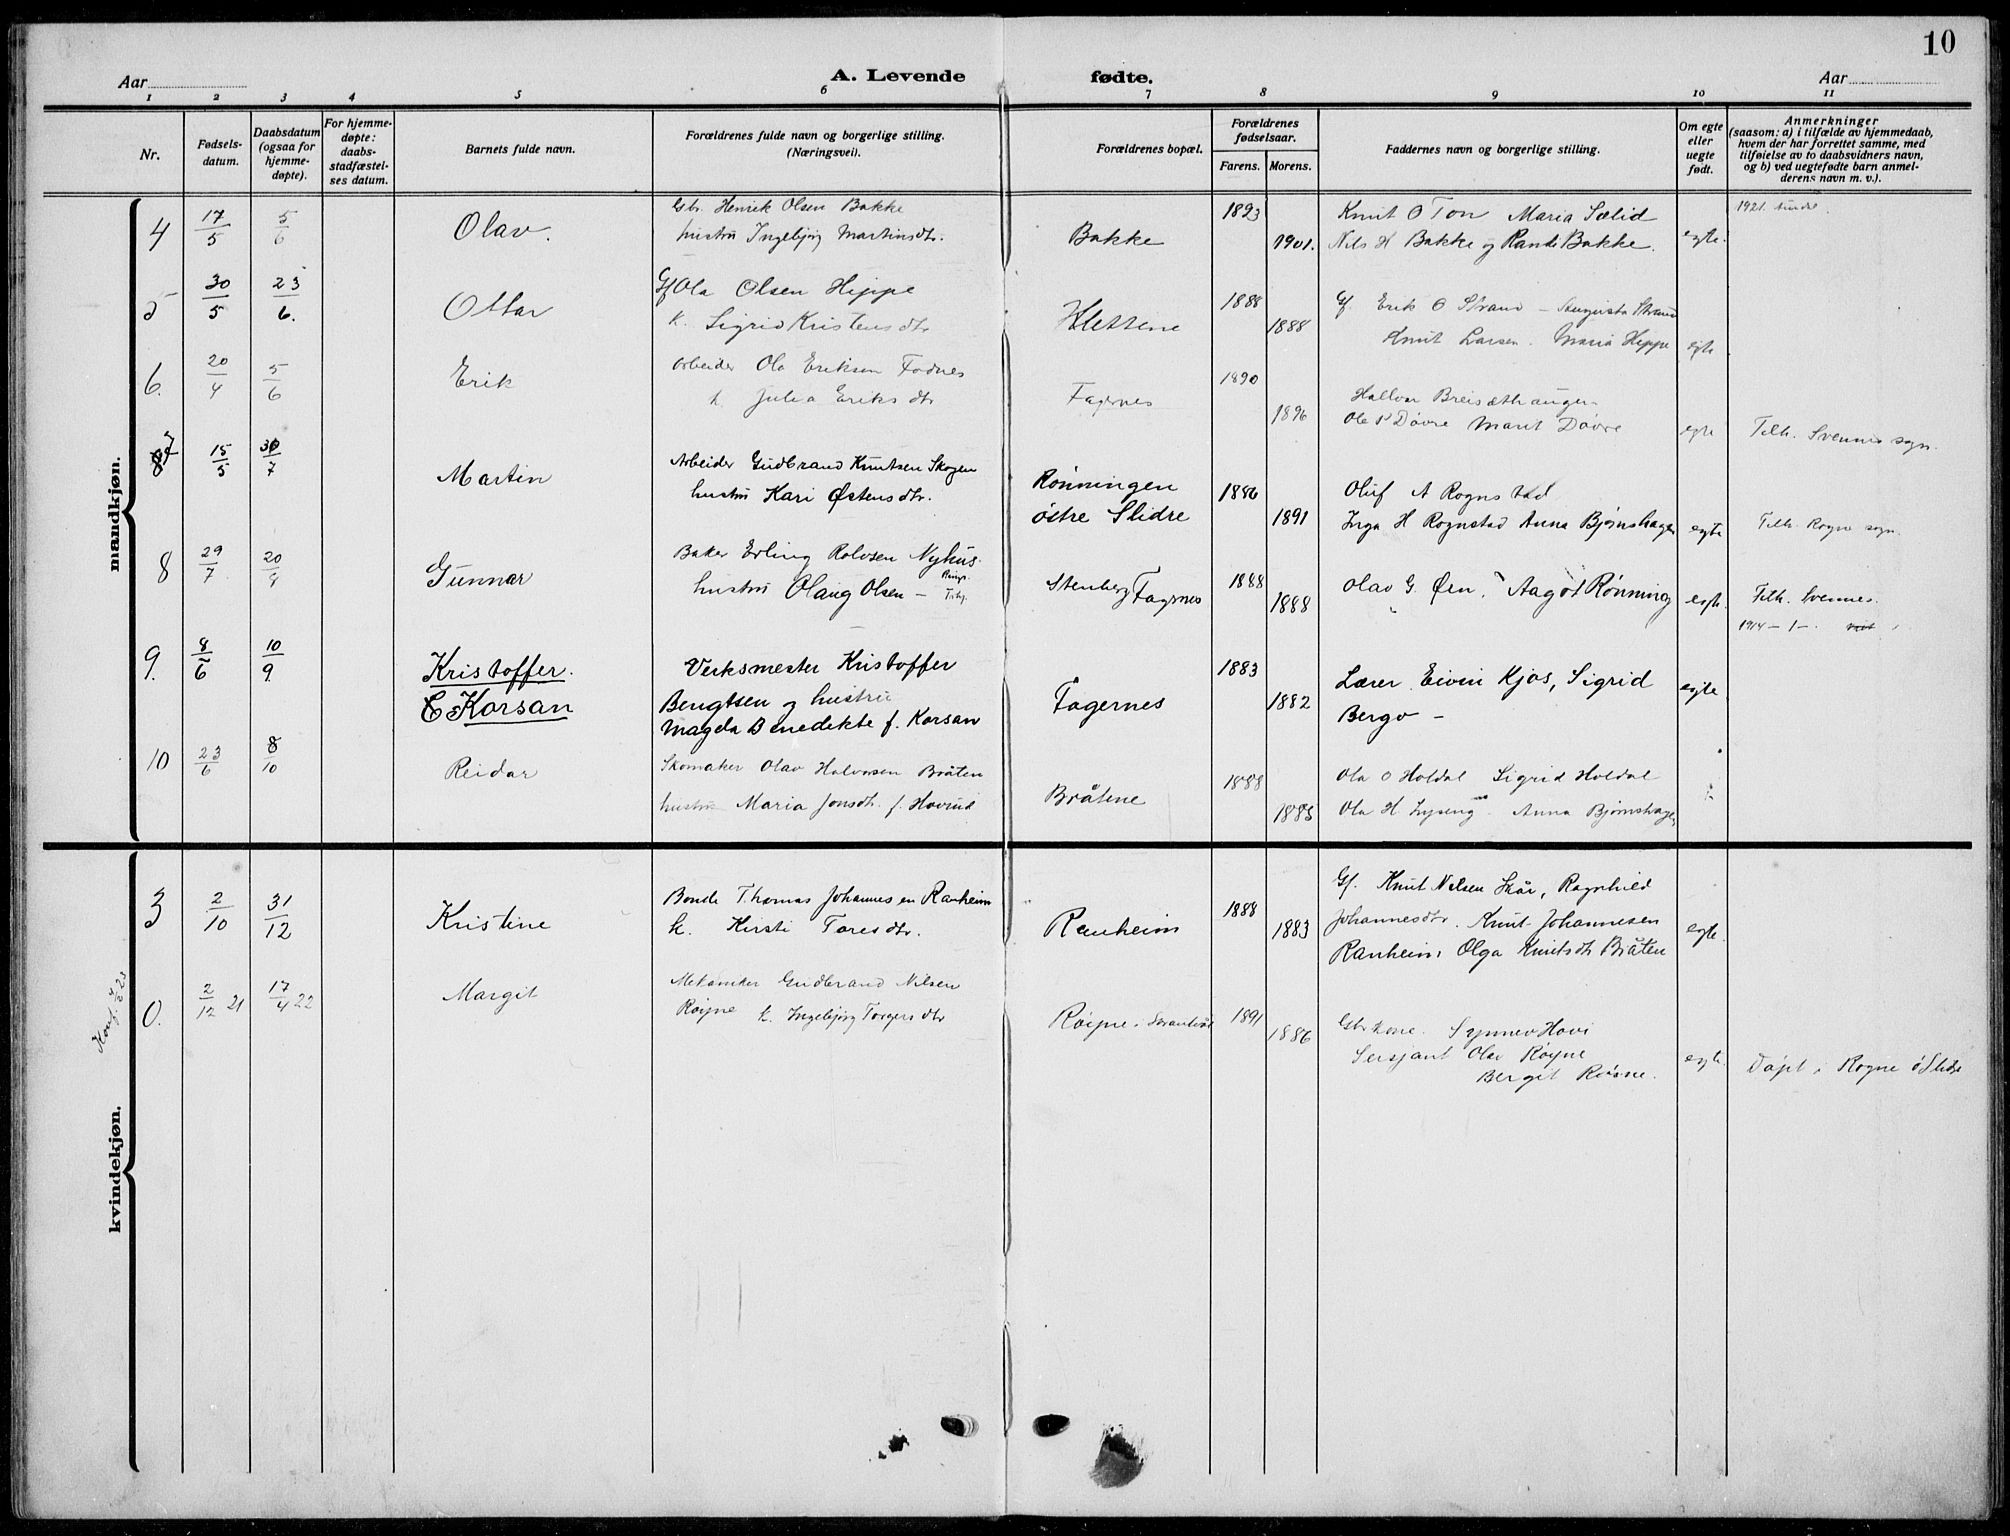 10
Aar
A. Levende fødte.
Aar
1 2 3 4 5 6 7 8 9 10 11
Nr.
Fødsels-
datum.
Daabsdatum
(ogsaa for
hjemme-
døpte).
For hjemme-
døpte:
daabs-
stadfæstel-
ses datum.
Barnets fulde navn.
Forældrenes fulde navn og borgerlige stilling.
(Næringsvei).
Forældrenes bopæl.
Forældrenes
fødselsaar.
Farens. Morens.
Faddernes navn og borgerlige stilling.
Om egte
eller
uegte
født.
Anmerkninger
(saasom: a) i tilfælde av hjemmedaab,
hvem der har forrettet samme, med
tilføielse av to daabsvidners navn,
og b) ved uegtefødte barn anmel-
derens navn m. v.).
mandkjøn.
4 17/5 5/6 Olav.
Gbr. Henrik Olsen Bakke
hustru Ingebjørg Martinsdtr.
Bakke 1893 1901.
Knut O Ton Maria Sælid
Nils H Bakke og Randi Bakke.
egte.
1921.
5 30/5 23/6. Ottar
Gf Ola Olsen Hippe
k. Sigrid Kristensdtr
Klettene 1888 1888
Gf. Erik O Strand – Augusta Strand
Knut Larsen. Maria Hippe
egte
6. 20/4 5/6 Erik
Arbeider Ola Eriksen Fodnes
k. Julia Eriksdtr
Fagernes 1890 1896
Hallvar
Ole P Døvre Marit Døvre
egte
Tilh. Svennes sogn.
7 15/5 30/7 Martin
Arbeider Gudbrand Knutsen Skogen
hustru Kari Østensdtr.
Rønningen
østre Slidre
1886 1891
Oluf A Rognstad
Inga H Rognstad Anna Bjørnshagen
egte
Tilh. Rogne sogn.
8 29/7 20/9 Gunnar
Baker Erling Rolvsen Nyhus.
hustru Olaug Olsen –
Stenberg Fagernes 1888 1888
Olav G. Øen, Aagot Rønning
egte.
Tilh. Svennes.
1914 – 1 –
9. 8/6 10/9. Kristoffer.
C Korsan
Verksmester Kristoffer
Bengtsen og hustru
Magda Benedikte f. Korsan
Fagernes 1883 1882
Lærer Eivin Kjos, Sigrid
Bergo –
egte
10 23/6 8/10 Reidar
Skomaker Olav Halvorsen Bråten
hustru Maria Jonsdtr. f. Hovrud
Bråtene 1888 1885
Ola O Holdal Sigrid Holdal
Ola H Lyseng Anna Bjørnshagen
kvindekjøn.
3 2/10 31/12 Kristine
Bonde Thomas Johannesen Ranheim
k. Kirsti Toresdtr.
Ranheim 1888 1883
Gf. Knut Nilsen Skår, Ragnhild
Johannesdtr. Knut Johannesen
Ranheim, Olga Knutsdtr Bråten
egte.
Konf.
0. 2/12 21 17/4 22 Margit
Mekaniker Gudbrand Nilsen
Røine k. Ingebjørg Torgersdtr
Røine 1891 1886
Gbrkone. Synnev Hovi
Sersjant Olav Røine
Bergit Røine.
egte.
Døpt i Rogne ø Slidre